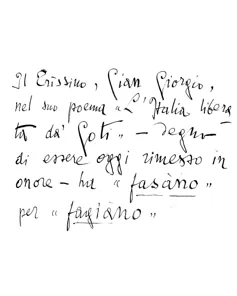 Il Trissino, Gian Giorgio,
nel suo poema "L'Italia libera
ta da' Goti" - degno
di essere oggi rimesso in
onore - ha "fasàno"
per "fagiàno"